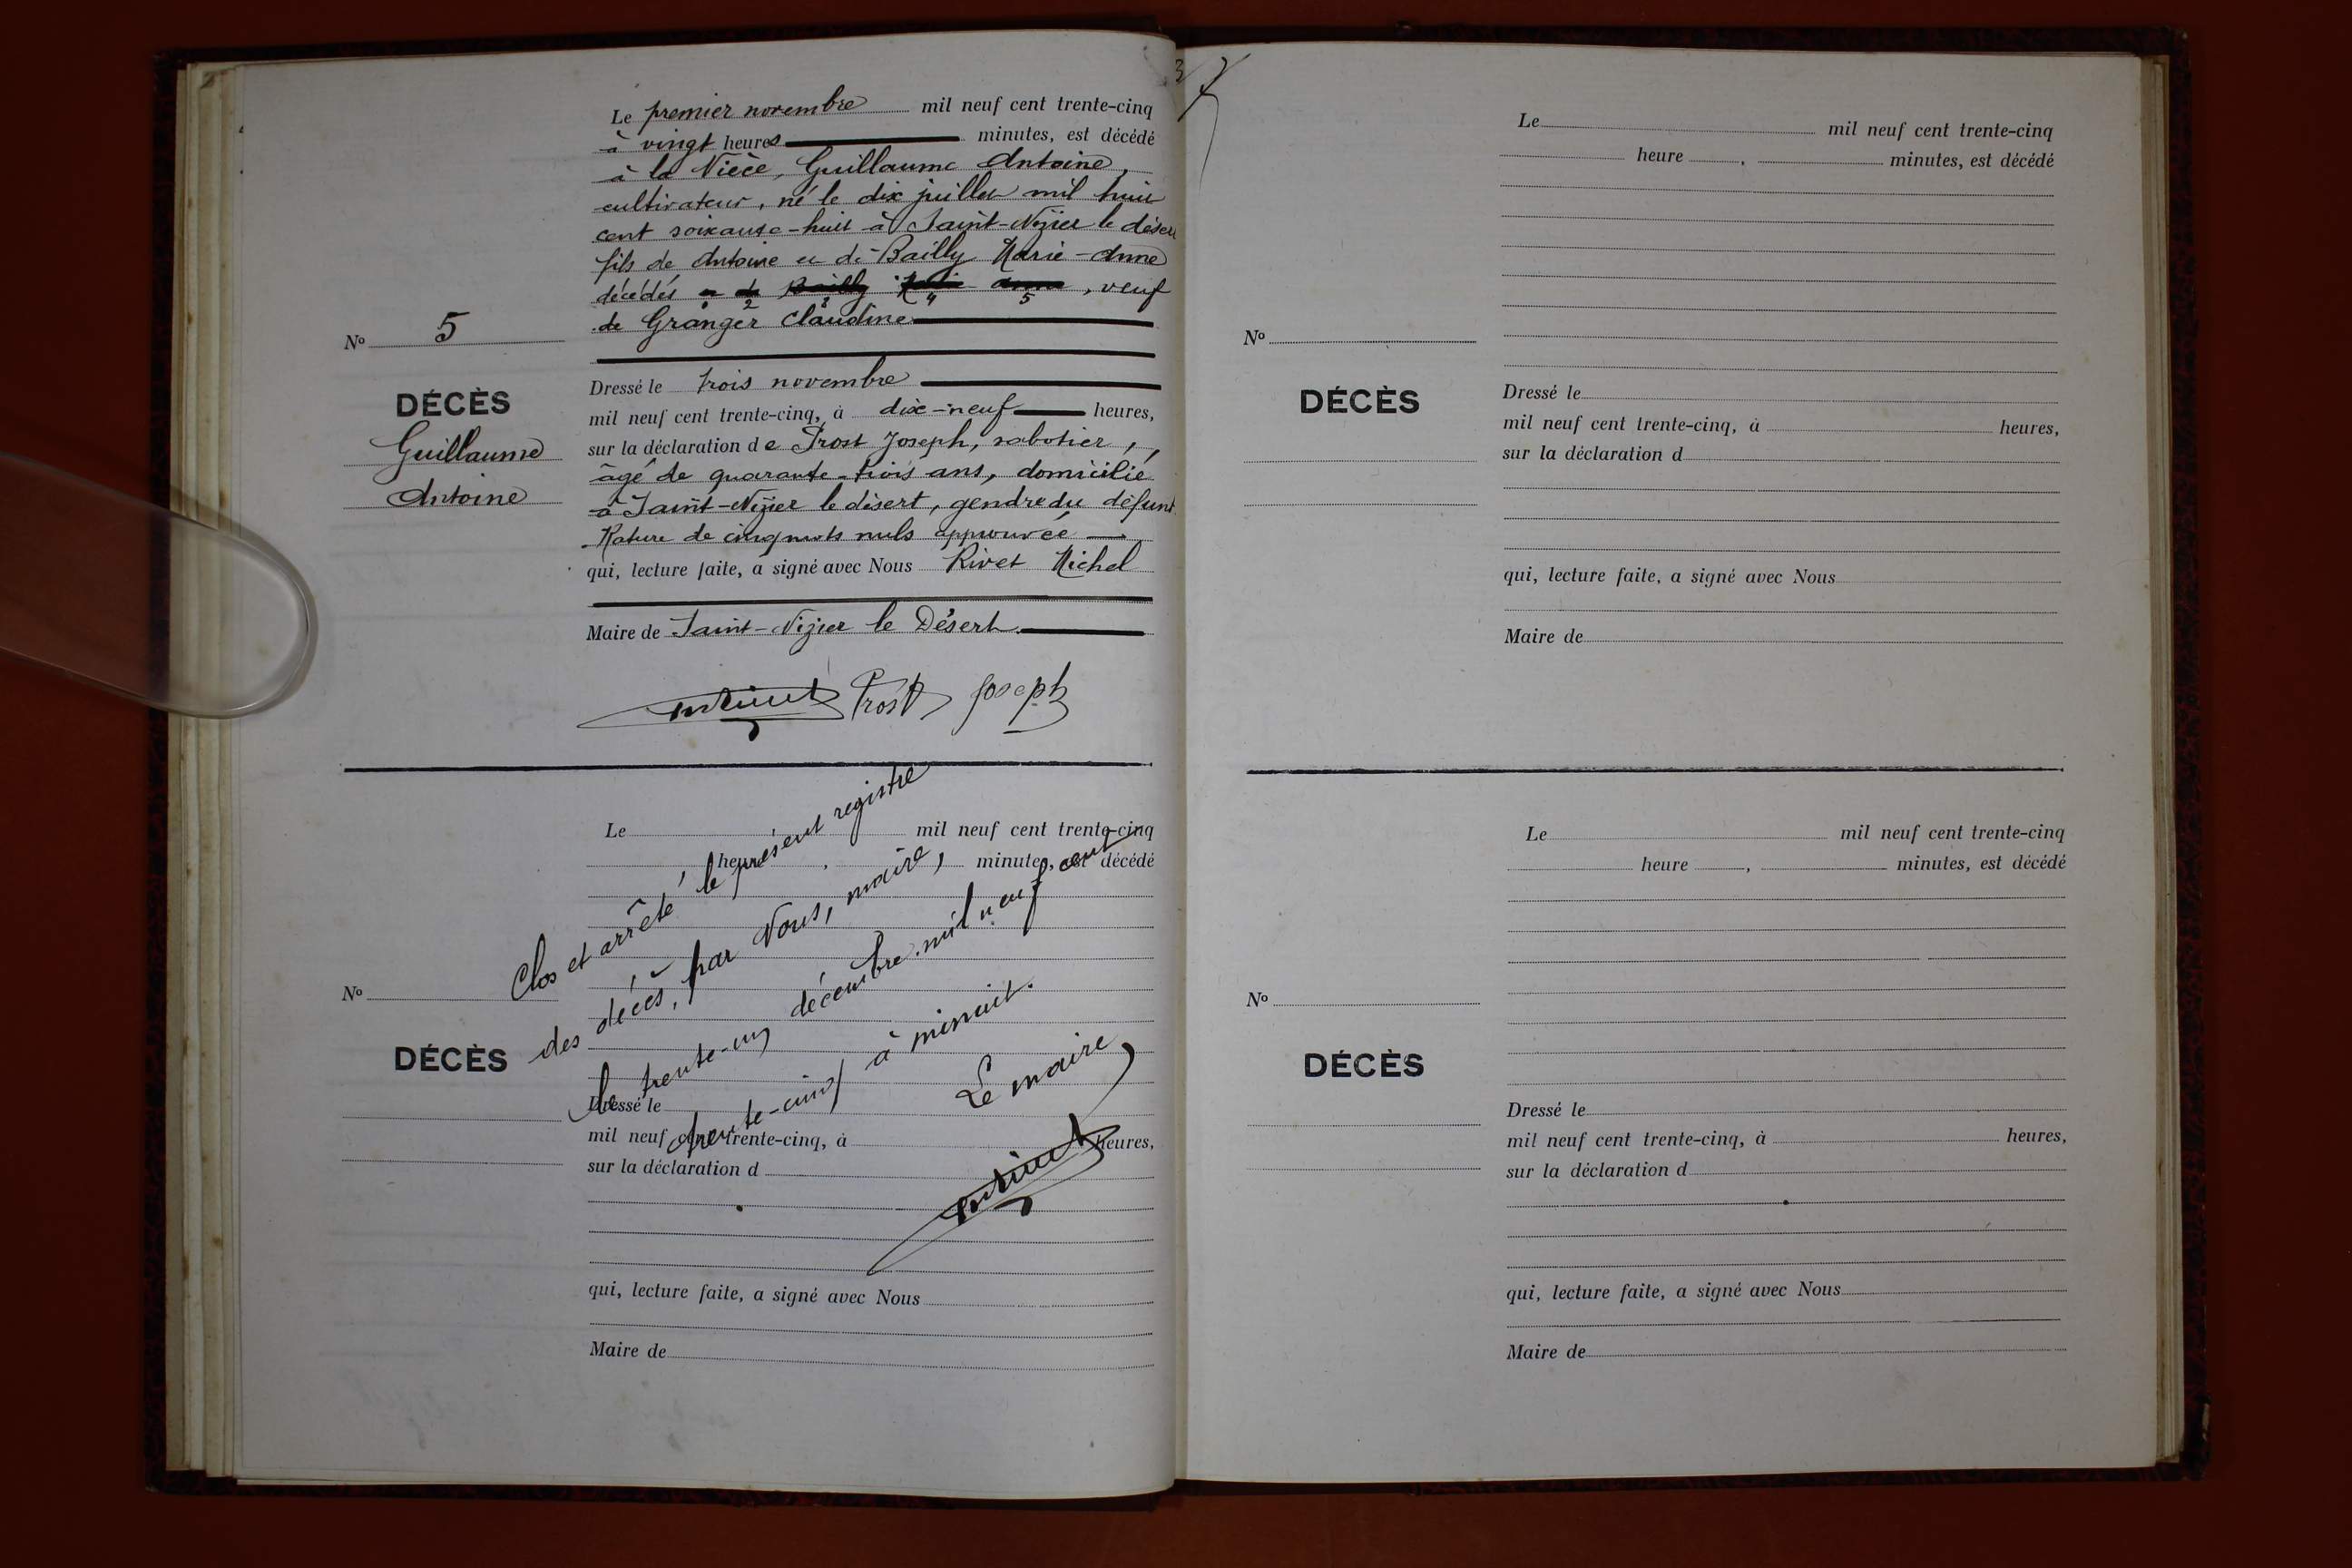 Le premier novembre mil neuf cent trente-cinq
à vingt heures minutes, est décédé
à la Nièce, Guillaume Antoine,
cultivateur, né le dix juillet mil huit
cent soixante-huit à Saint-Nizier le désert
fils de Antoine et de Bailly Marie-Anne
décédés et de Bailly Marie Anne, veuf
1 2 3 4 5
de Granger Claudine
Nº 5
DÉCÈS
Guillaume
Antoine
Dressé le trois novembre
mil neuf cent trente-cinq, à dix-neuf heures,
sur la déclaration de Prost Joseph, sabotier,
âgé de quarante-trois ans, domicilié
à Saint-Nizier le désert, gendre du défunt
Rature de cinq mots nuls approuvée
qui, lecture faite, a signé avec Nous Rivet Michel
Maire de Saint-Nizier le Désert.
Prost Joseph
Le mil neuf cent trente-cinq
heure , minutes, est décédé
Clos et arrêté le présent registre
des décès, par Nous, maire,
le trente-un décembre mil neuf cent
trente-cinq à minuit.
Le maire
Nº
DÉCÈS
Dressé le
mil neuf cent trente-cinq, à heures,
sur la déclaration d
qui, lecture faite, a signé avec Nous
Maire de
Le mil neuf cent trente-cinq
heure , minutes, est décédé
Nº
DÉCÈS
Dressé le
mil neuf cent trente-cinq, à heures,
sur la déclaration d
qui, lecture faite, a signé avec Nous
Maire de
Le mil neuf cent trente-cinq
heure , minutes, est décédé
Nº
DÉCÈS
Dressé le
mil neuf cent trente-cinq, à heures,
sur la déclaration d
qui, lecture faite, a signé avec Nous
Maire de